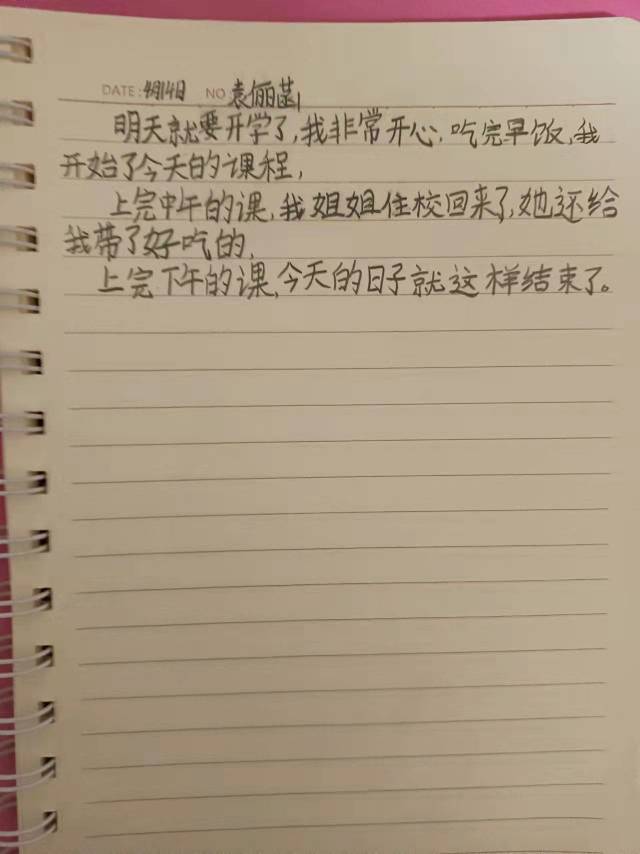 DATE: 4月14日 NO 袁俪菡
明天就要开学了,我非常开心,吃完早饭,我
开始了今天的课程,
上完中午的课,我姐姐住校回来了,她还给
我带了好吃的,
上完下午的课,今天的日子就这样结束了。